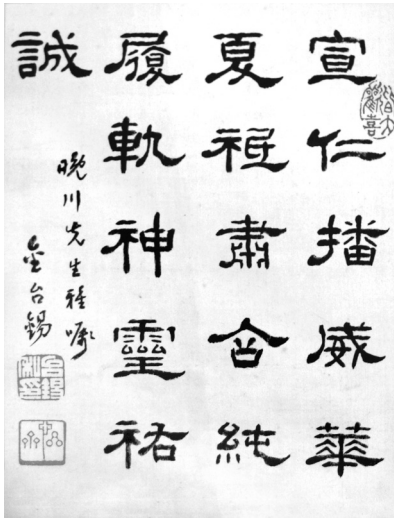 宣仁播威華
夏祗肅含純
履軌神靈祐
誠
晩川先生雅嘱
金台錫